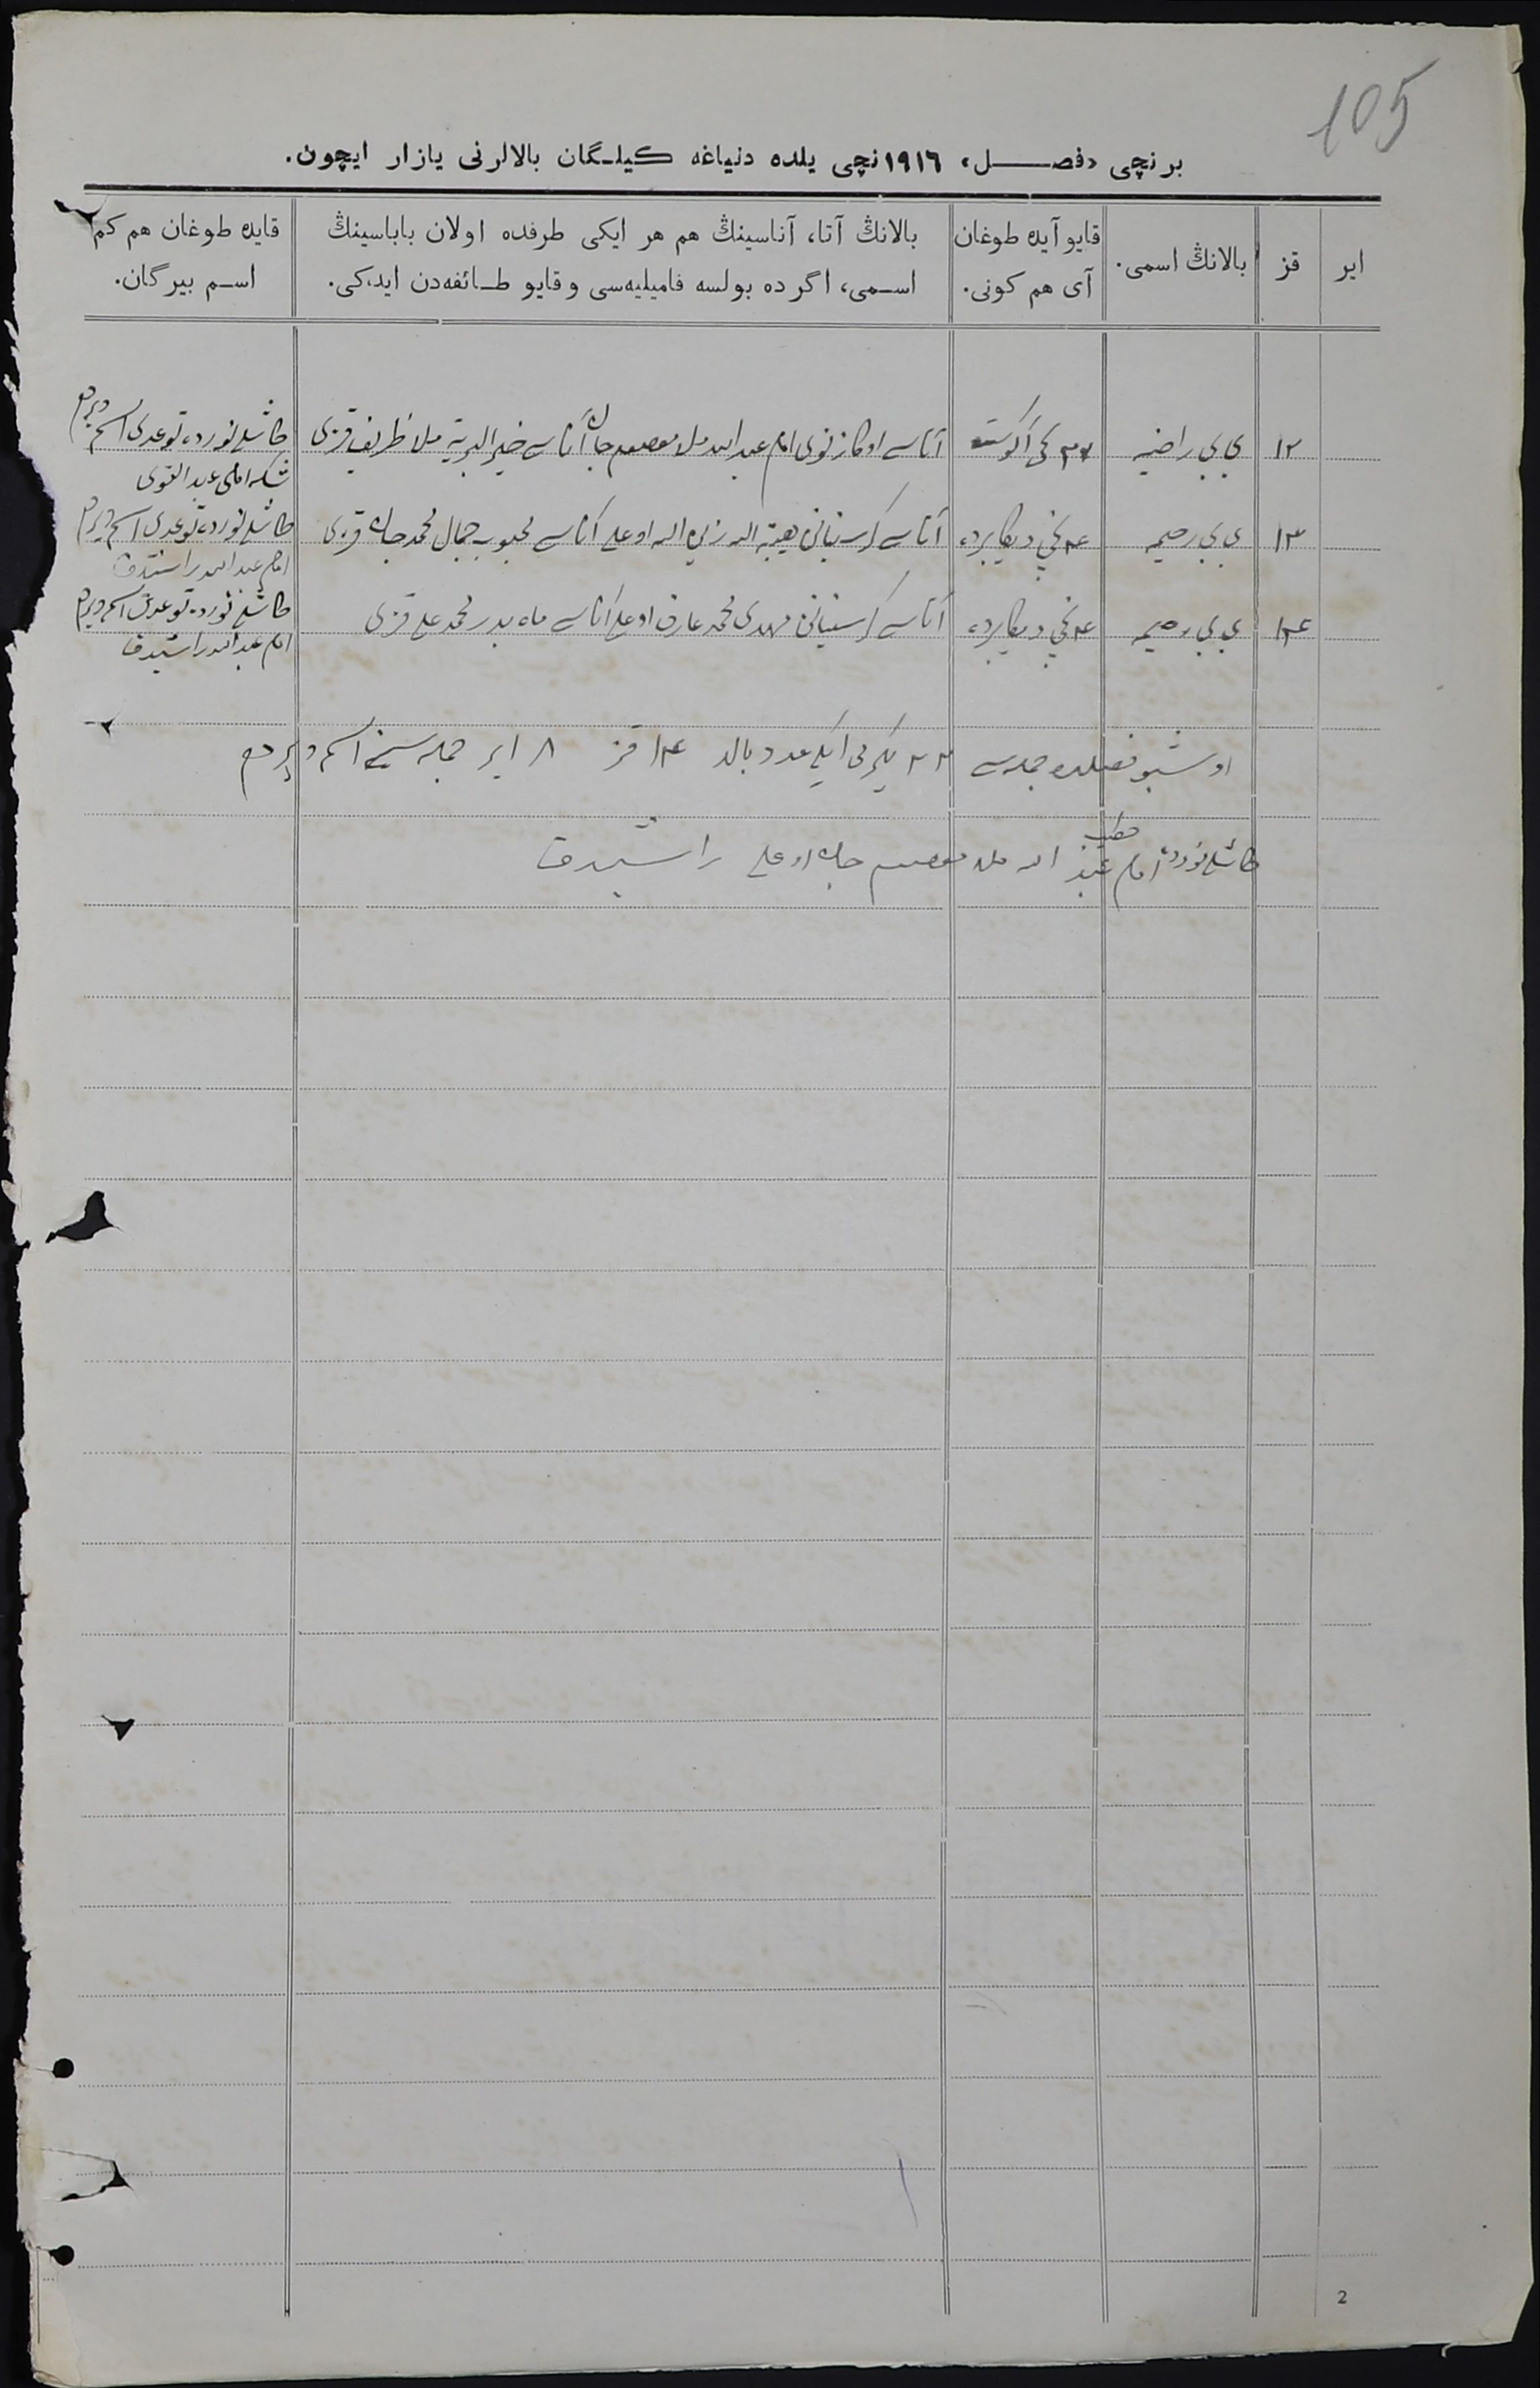 105
برنچی «فصل» ١٩١٦نچی یلده دنیاغه کیلگان بالالرنی یازار ایچون.
ایر
قز
بالانڭ اسمی.
قایو آیده طوغان
آی هم کونی.
بالانڭ آتا، آناسینڭ هم هر ایکی طرفده اولان باباسینڭ
اسمی، اگرده بولسه فامیلیه‌سی و قایو طائفه‌دن ایدکی.
قایده طوغان هم کم
اسم بیرگان.
١٢
بی بی راضیه
٢٧ نچی آگوست
آتاسی اوکازنوی امام عبد الله ملا معصوم جان آناسی خیر البریة ملا ظریف قزی
نورده توغدی اسم
ویردم
عبد القوی
١٣
بی بی رحیمه
٤ نچی دیکابرده
آتاسی کرستیانین هبة الله زین الله اوغلی آناسی محبوب جمال محمد جان قزی
نورده توغدی اسم ویردم
امام عبد الله راشیدف
١٤
بی بی رحیمه
٤ نچی دیکابرده
آتاسی کرستیانین مهدی محمد عارف اوغلی آناسی ماه بدر محمد علی قزی
نورده توغدی اسم ویردم
امام عبد الله راشیدف
اوشبو فصلده جمله‌سی ٢٢ یگرمی ایکی عدد بالا ١٤ قز ٨ ایر جمله‌سینه اسم ویردم
خطیب
امام عبد الله ملا معصوم جان اوغلی راشیدف
2